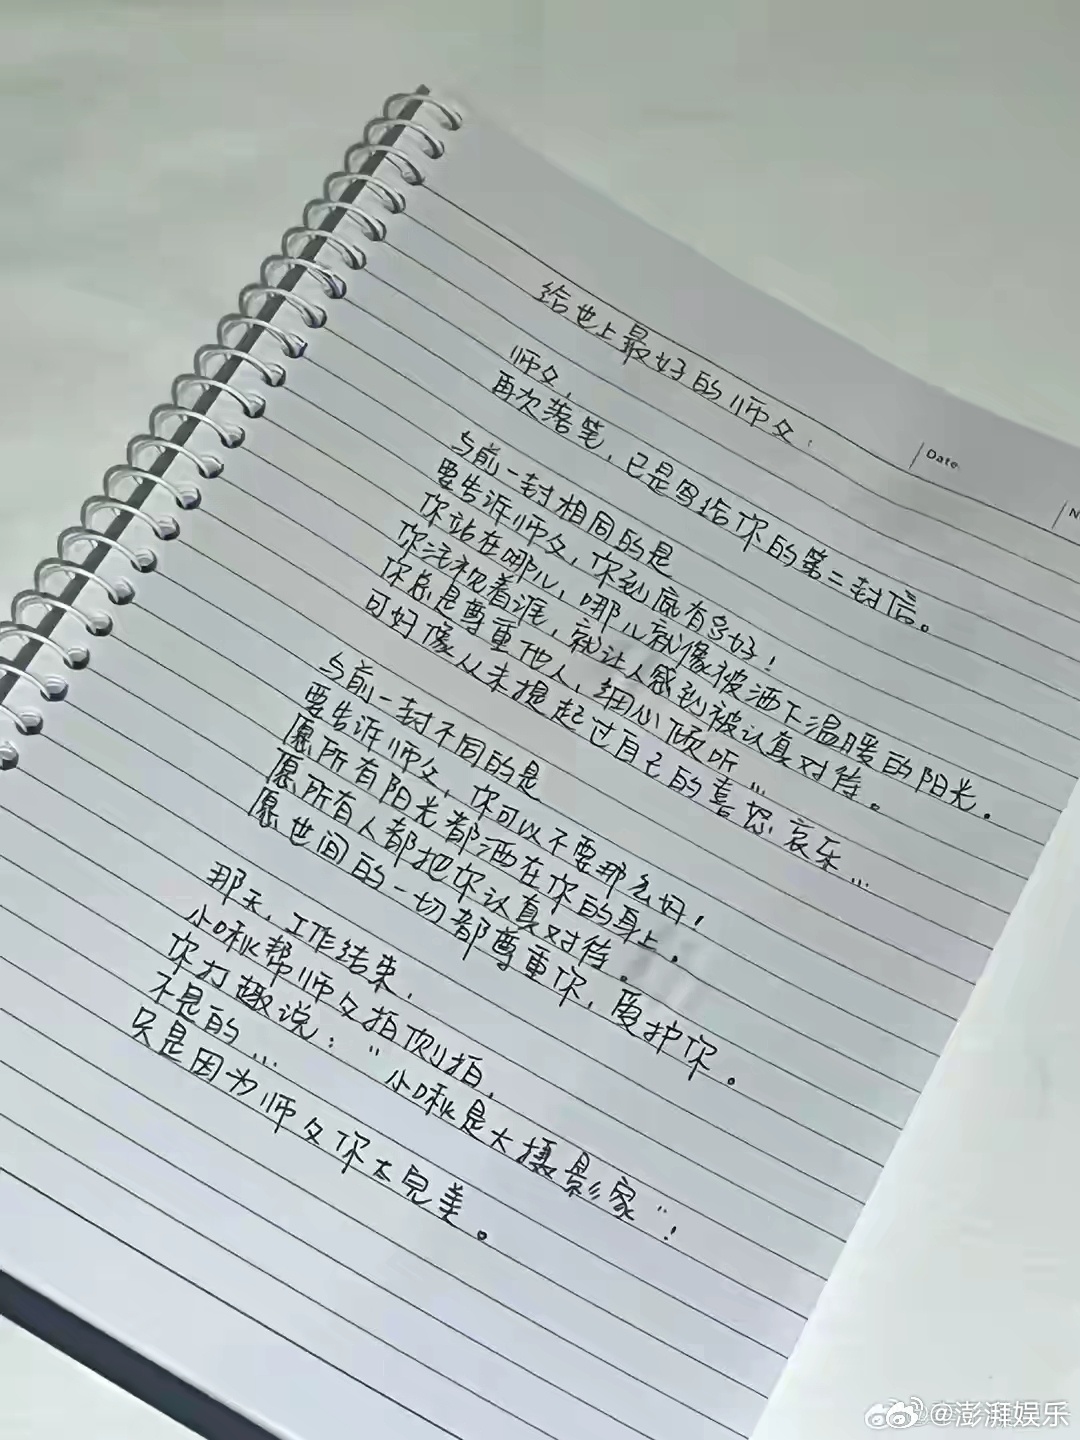 给世上最好的师父：
Date.
N
师父，
再次落笔，已是写给你的第二封信。
与前一封相同的是
要告诉师父，你到底有多好！
你站在哪儿，哪儿就像被洒下温暖的阳光，
你注视着谁，就让人感到被认真对待。
你总是尊重他人，细心倾听…
可好像从未提起过自己的喜怒哀乐…
与前一封不同的是
要告诉师父，你可以不要那么好！
愿所有阳光都洒在你的身上，
愿所有人都把你认真对待。
愿世间的一切都尊重你，爱护你。
那天，工作结束，
小啾帮师父拍侧拍，
你打趣说：“小啾是大摄影家”！
不是的…
只是因为师父你太完美。
@澎湃娱乐